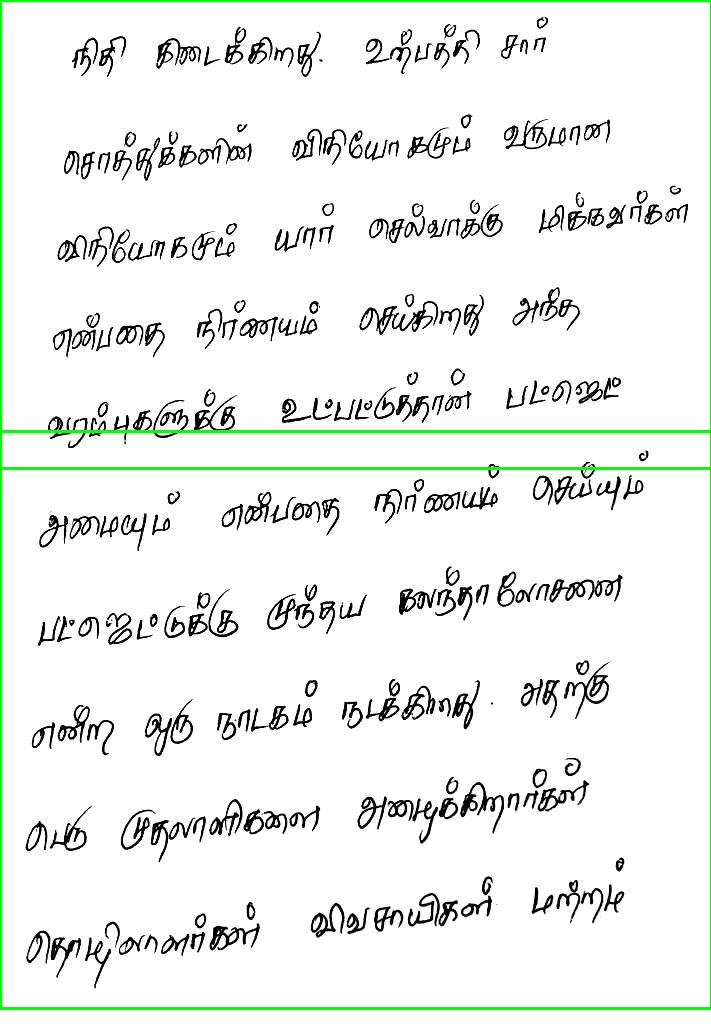 நிதி கிடைக்கிறது. உற்பத்தி சார்
சொத்துக்களின் விநியோகமும் வருமான
விநியோகமும் யார் செல்வாக்கு மிக்கவர்கள்
என்பதை நிர்ணயம் செய்கிறது அந்த
வரம்புகளுக்கு உட்பட்டுத்தான் பட்ஜெட்
அமையும் என்பதை நிர்ணயம் செய்யும்
பட்ஜெட்டுக்கு முந்தய கலந்தாலோசனை
என்ற ஒரு நாடகம் நடக்கிறது. அதற்கு
பெரு முதலாளிகளை அழைக்கிறார்கள்
தொழிலாளர்கள் விவசாயிகள் மற்றம்